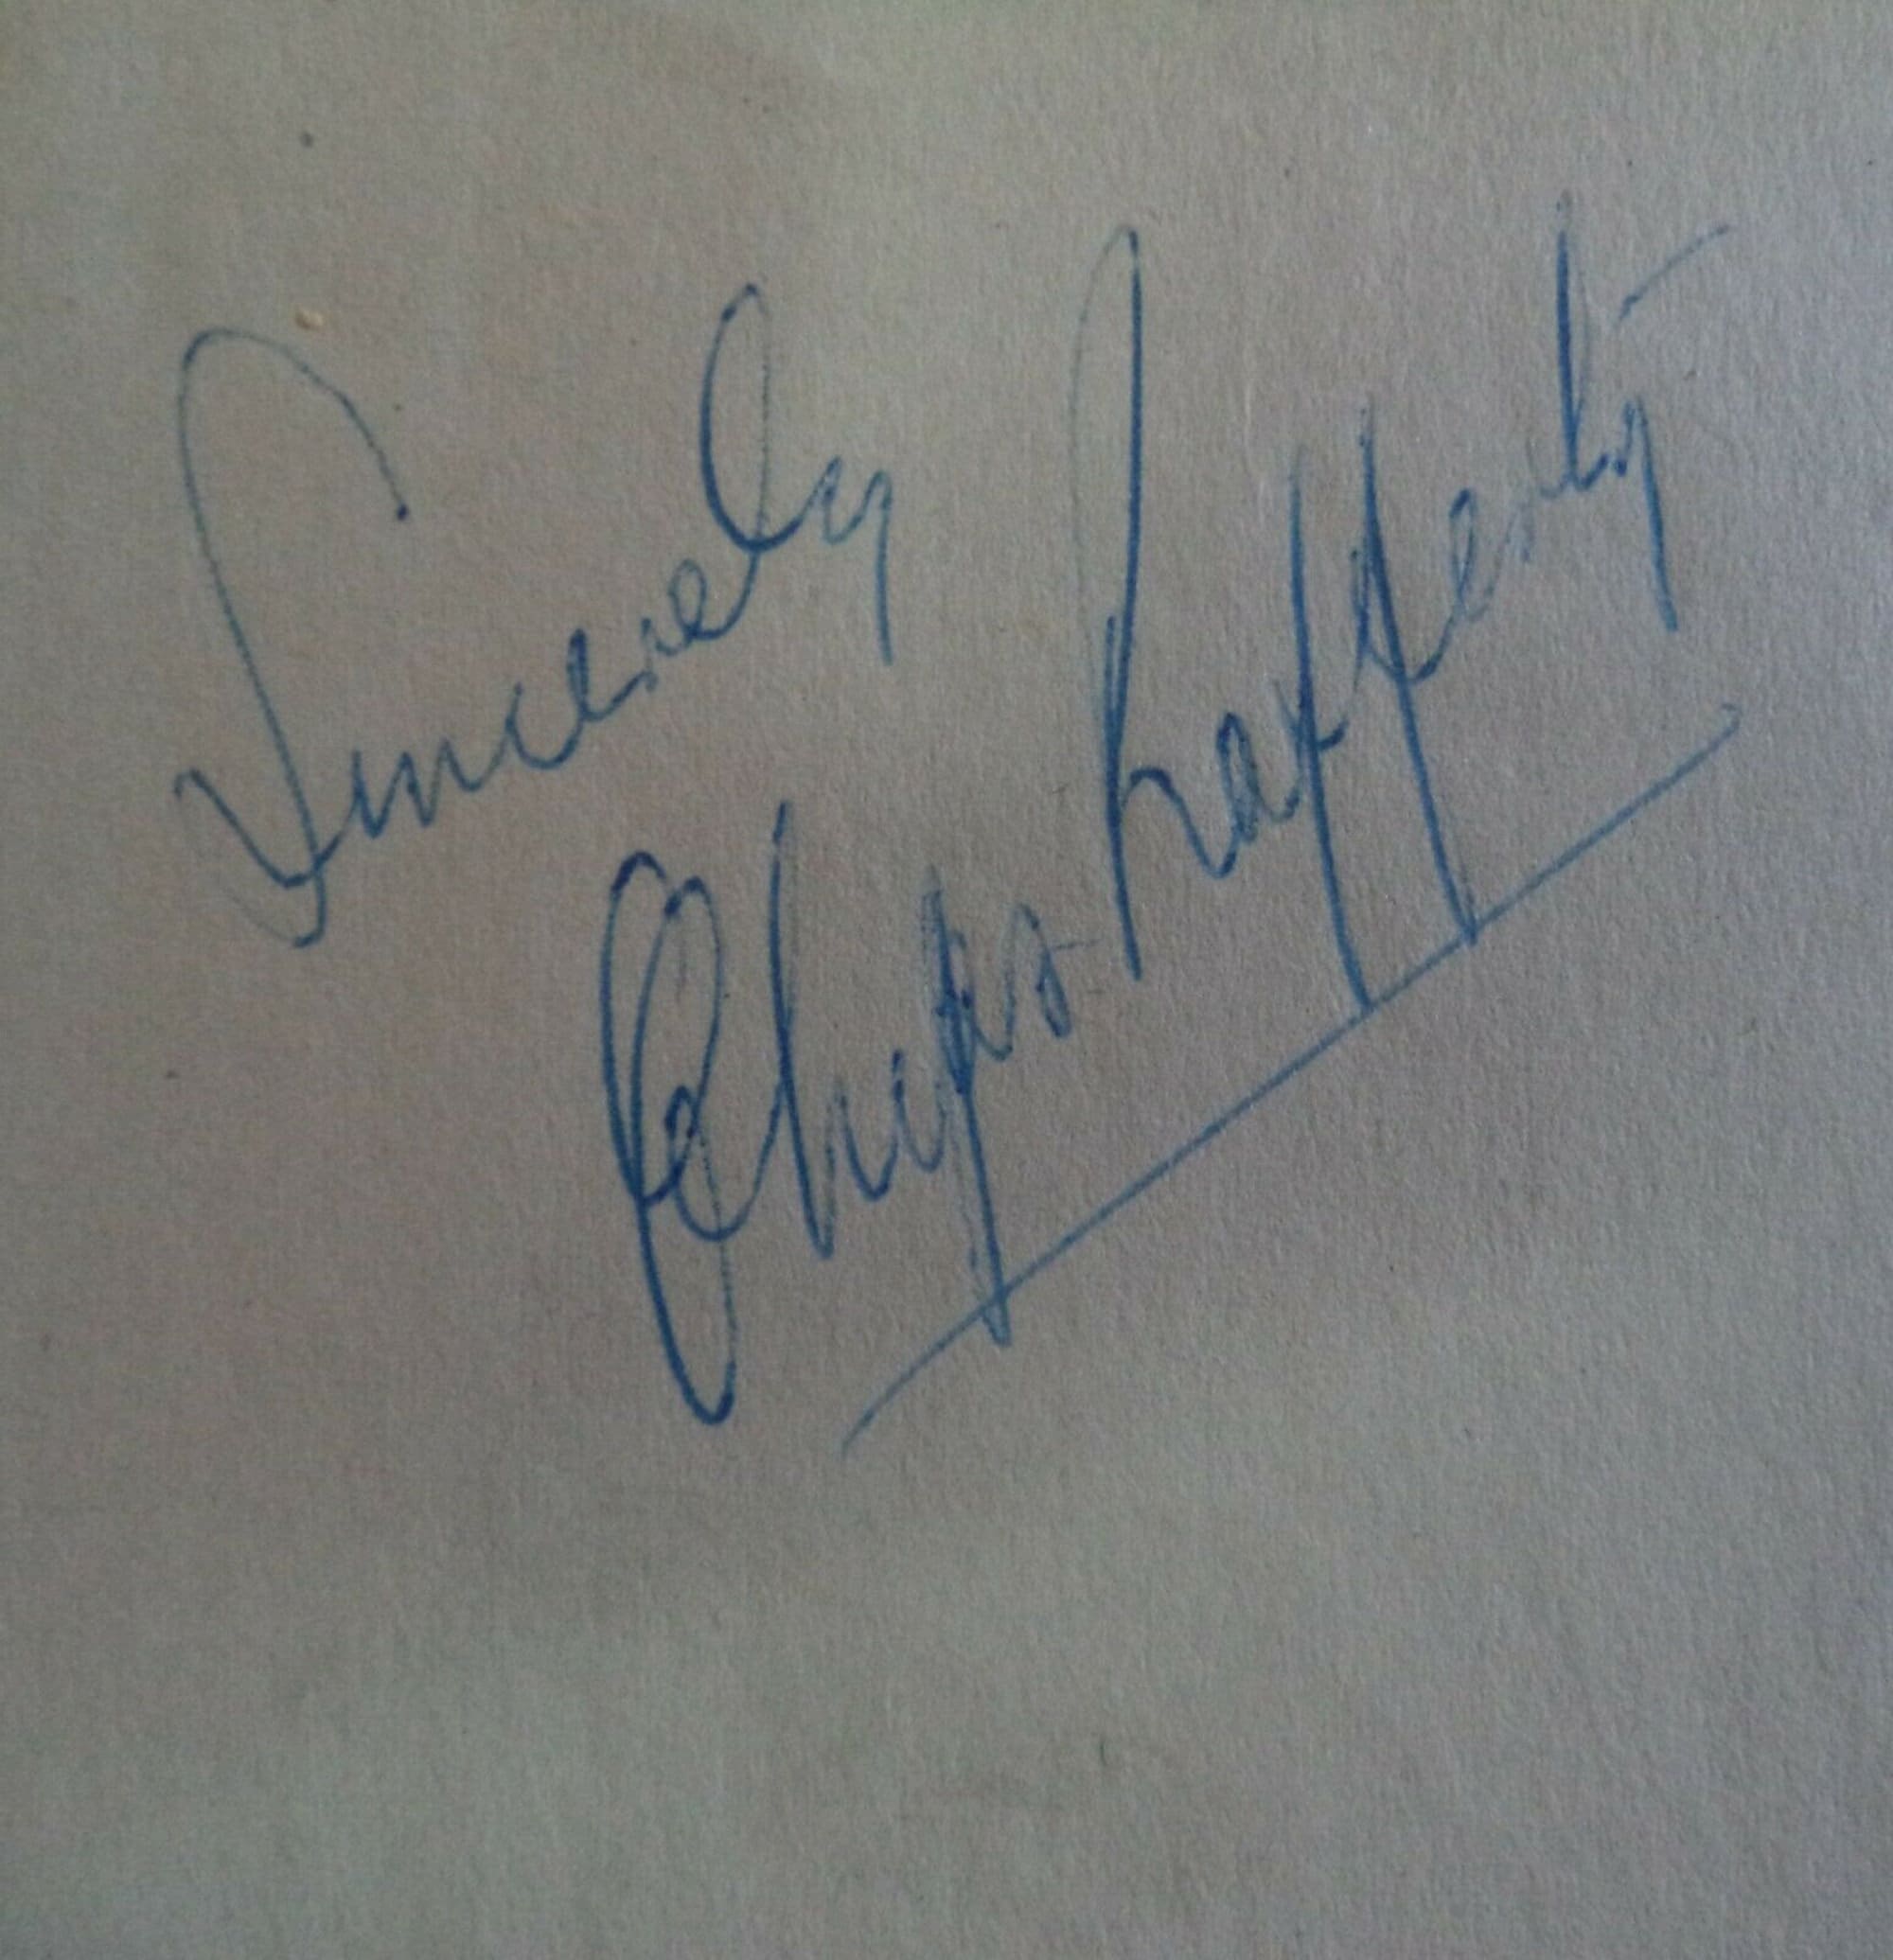 Sincerely
Chips Rafferty